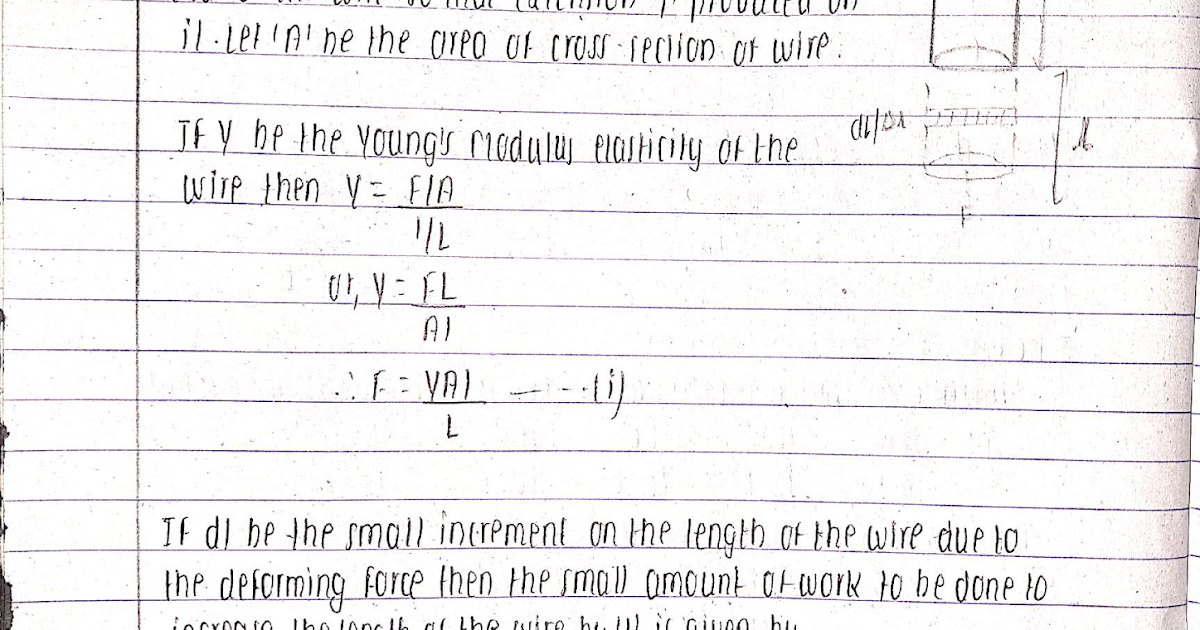 so that extension 'l' produced on
it. Let 'A' be the area of cross-section of wire.
If Y be the Young's modulus elasticity of the
wire then Y = F/A
l/L
or, Y = FL
Al
∴ F = YAl --- (i)
L
dl/Δl
l
F
If dl be the small increment on the length of the wire due to
the deforming force then the small amount of work to be done to
increase the length of the wire by 'dl' is given by